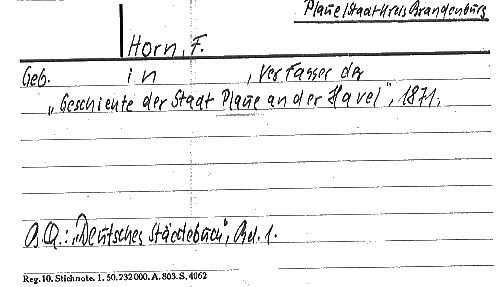 Plaue/Stadtkreis Brandenburg
Horn, F.
Geb. in , Verfasser der
„Geschichte der Stadt Plaue an der Havel", 1871.
B.Q.: „Deutsches Städtebuch", Bd. 1.
Reg. 10. Stichnote. 1. 50. 232 000. A. 803. S. 4062